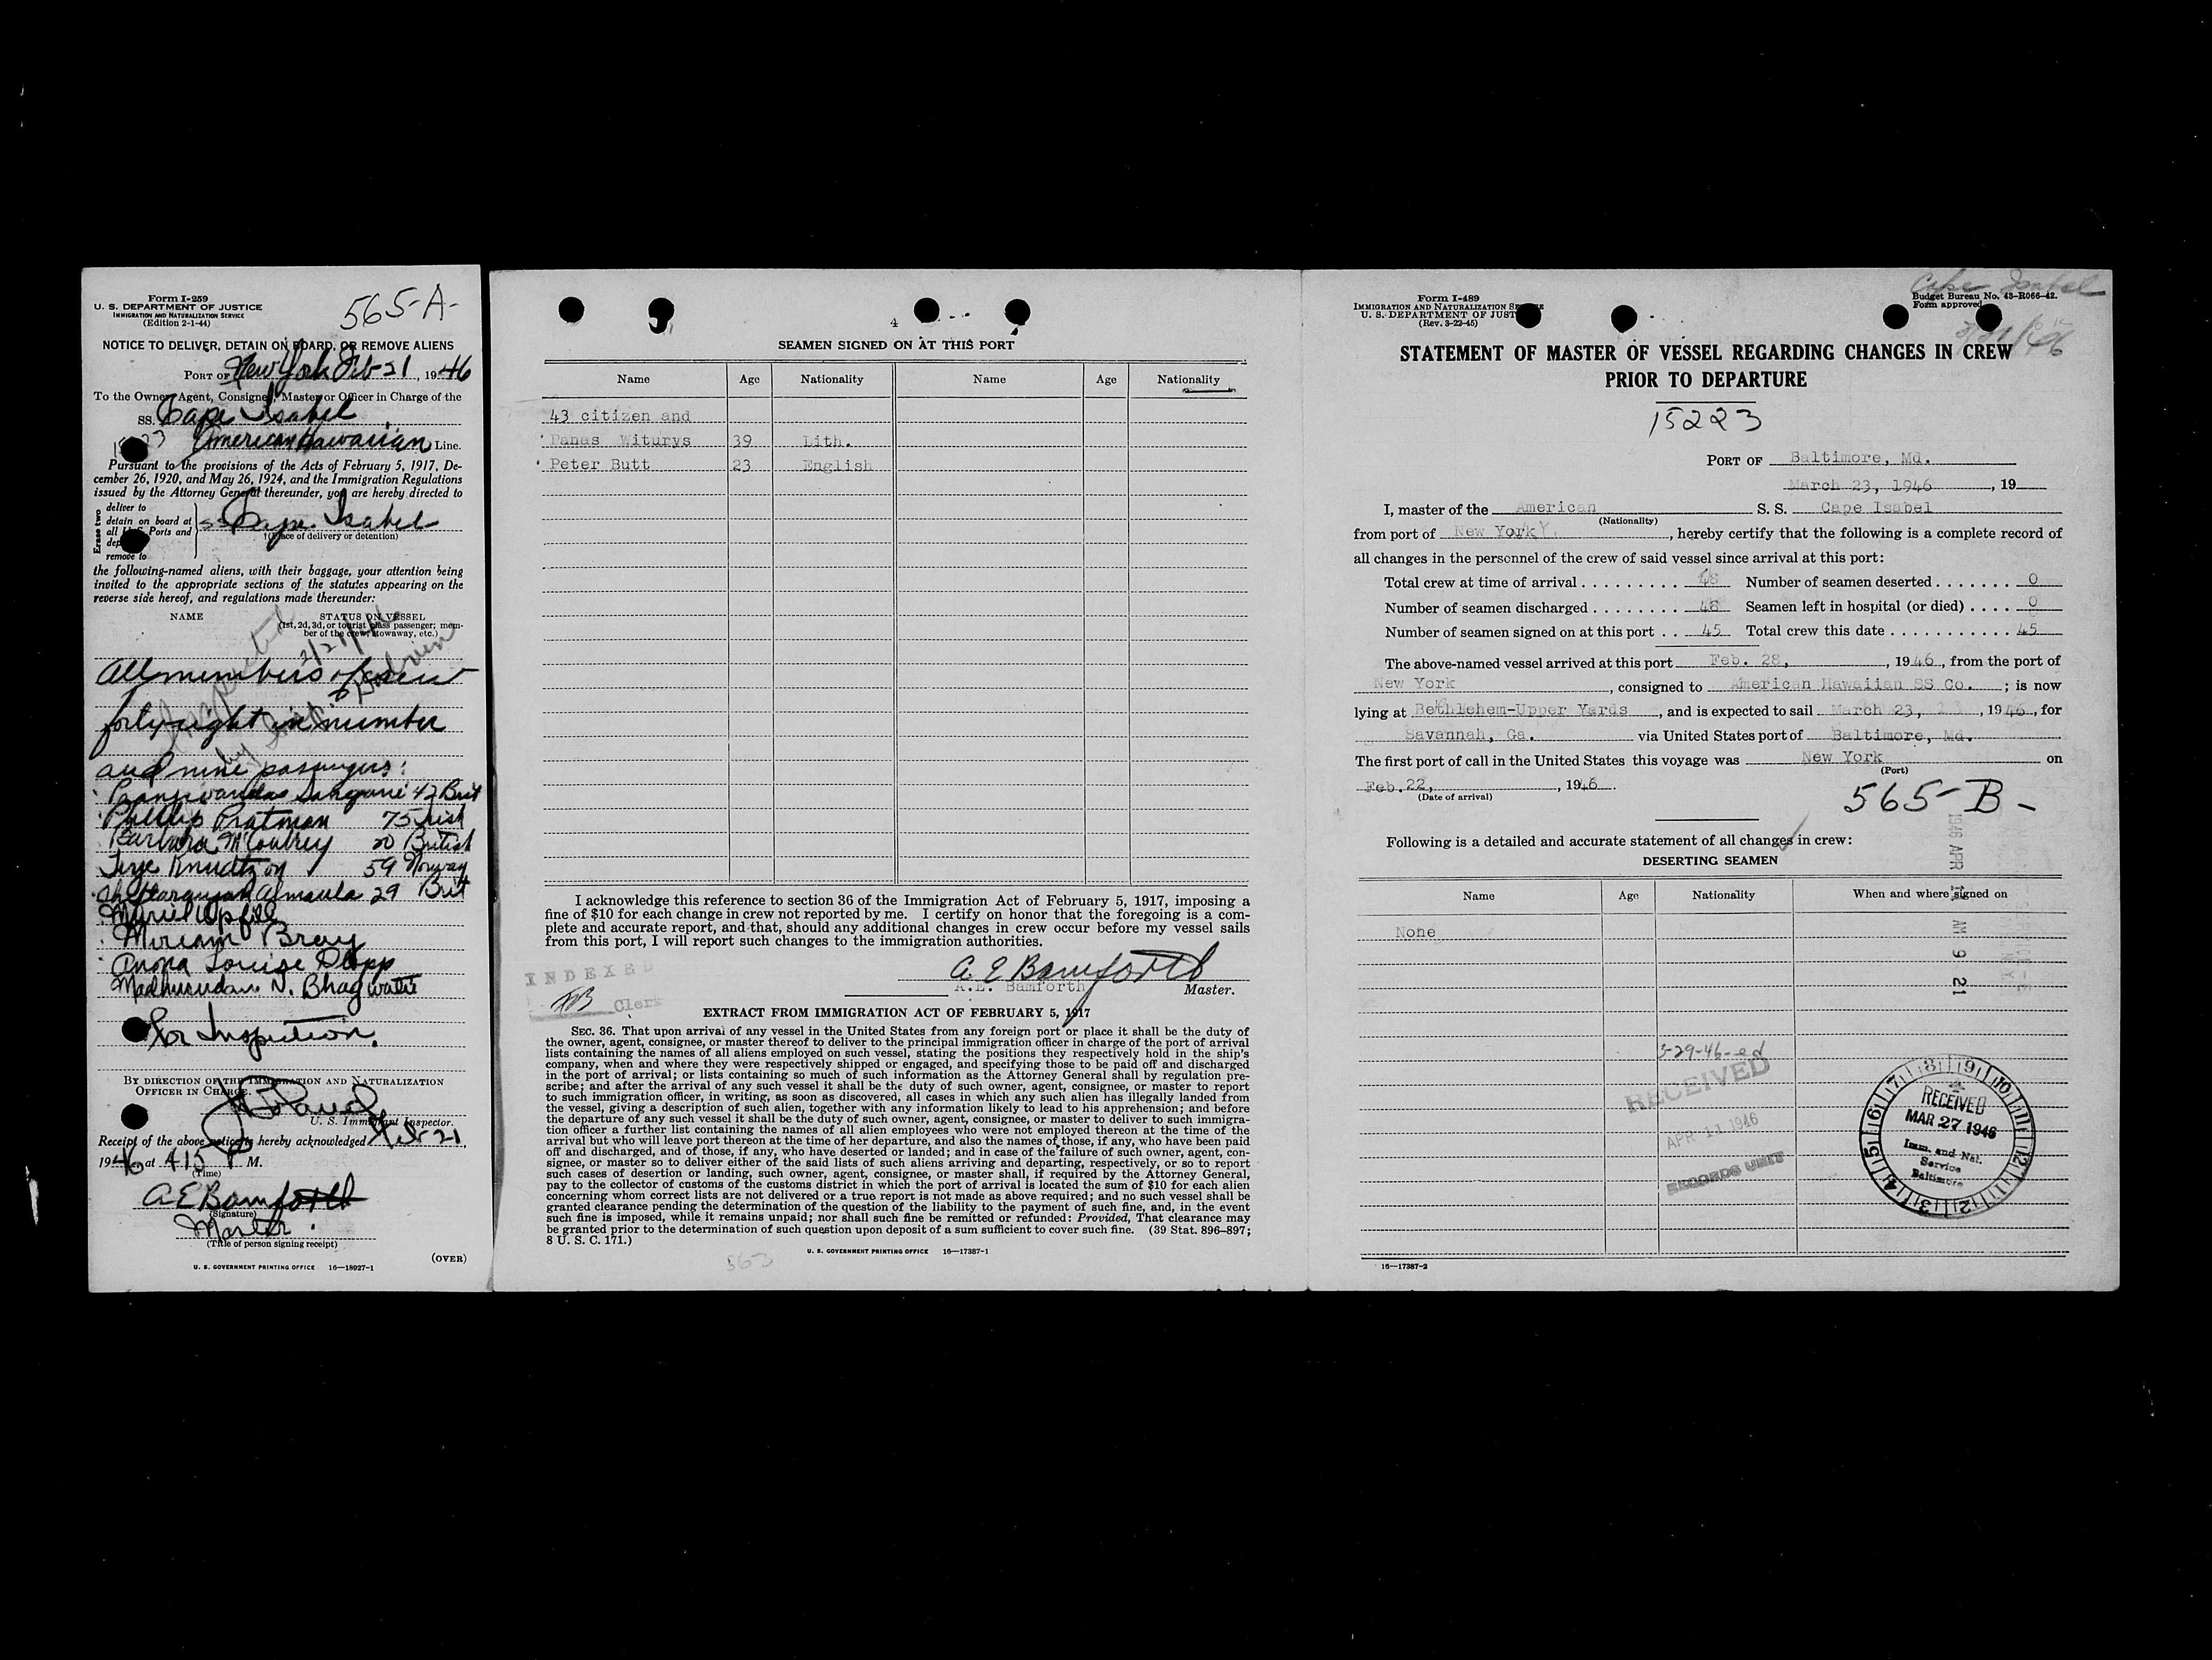 Form I-259
U. S. DEPARTMENT OF JUSTICE
IMMIGRATION AND NATURALIZATION SERVICE
(Edition 2-1-44)
565-A-
NOTICE TO DELIVER, DETAIN ON BOARD, OR REMOVE ALIENS
PORT OF New York Feb 21, 1946
To the Owner, Agent, Consignee, Master or Officer in Charge of the
SS. Cape Isabel
American Hawaiian Line.
Pursuant to the provisions of the Acts of February 5, 1917, De-
cember 26, 1920, and May 26, 1924, and the Immigration Regulations
issued by the Attorney General thereunder, you are hereby directed to
Erase two
deliver to
detain on board at
all U. S. Ports and
remove to
SS Cape Isabel
†(Place of delivery or detention)
the following-named aliens, with their baggage, your attention being
invited to the appropriate sections of the statutes appearing on the
reverse side hereof, and regulations made thereunder:
NAME
STATUS ON VESSEL
(1st, 2d, 3d, or tourist class passenger; mem-
ber of the crew, stowaway, etc.)
All members of crew
forty eight in number
and nine passengers:
42 Brit
Phillip Pratman 75 Irish
Barbara McCoubrey 20 British
Terje Knudtzon 59 Norway
29 Brit
Muriel Upfill
Miriam Bray
Anona Louise Stopp
N. Bhagwate
for Inspection.
BY DIRECTION OF THE IMMIGRATION AND NATURALIZATION
OFFICER IN CHARGE.
U. S. Immigrant Inspector.
Receipt of the above notice is hereby acknowledged Feb 21,
1946, at 4 15 P M.
(Time)
A E Bamforth
(Signature)
Master.
(Title of person signing receipt)
(OVER)
U. S. GOVERNMENT PRINTING OFFICE 16—18927-1
4
SEAMEN SIGNED ON AT THIS PORT
Name Age Nationality Name Age Nationality
43 citizen and
Panas Witurys 39 Lith.
Peter Butt 23 English
I acknowledge this reference to section 36 of the Immigration Act of February 5, 1917, imposing a
fine of $10 for each change in crew not reported by me. I certify on honor that the foregoing is a com-
plete and accurate report, and that, should any additional changes in crew occur before my vessel sails
from this port, I will report such changes to the immigration authorities.
INDEXED
Clerk
A. E Bamforth
A.E. Bamforth
Master.
EXTRACT FROM IMMIGRATION ACT OF FEBRUARY 5, 1917
SEC. 36. That upon arrival of any vessel in the United States from any foreign port or place it shall be the duty of
the owner, agent, consignee, or master thereof to deliver to the principal immigration officer in charge of the port of arrival
lists containing the names of all aliens employed on such vessel, stating the positions they respectively hold in the ship's
company, when and where they were respectively shipped or engaged, and specifying those to be paid off and discharged
in the port of arrival; or lists containing so much of such information as the Attorney General shall by regulation pre-
scribe; and after the arrival of any such vessel it shall be the duty of such owner, agent, consignee, or master to report
to such immigration officer, in writing, as soon as discovered, all cases in which any such alien has illegally landed from
the vessel, giving a description of such alien, together with any information likely to lead to his apprehension; and before
the departure of any such vessel it shall be the duty of such owner, agent, consignee, or master to deliver to such immigra-
tion officer a further list containing the names of all alien employees who were not employed thereon at the time of the
arrival but who will leave port thereon at the time of her departure, and also the names of those, if any, who have been paid
off and discharged, and of those, if any, who have deserted or landed; and in case of the failure of such owner, agent, con-
signee, or master so to deliver either of the said lists of such aliens arriving and departing, respectively, or so to report
such cases of desertion or landing, such owner, agent, consignee, or master shall, if required by the Attorney General,
pay to the collector of customs of the customs district in which the port of arrival is located the sum of $10 for each alien
concerning whom correct lists are not delivered or a true report is not made as above required; and no such vessel shall be
granted clearance pending the determination of the question of the liability to the payment of such fine, and, in the event
such fine is imposed, while it remains unpaid; nor shall such fine be remitted or refunded: Provided, That clearance may
be granted prior to the determination of such question upon deposit of a sum sufficient to cover such fine. (39 Stat. 896–897;
8 U. S. C. 171.)
U. S. GOVERNMENT PRINTING OFFICE 16—17387-1
563
Form I-489
IMMIGRATION AND NATURALIZATION SERVICE
U. S. DEPARTMENT OF JUST
(Rev. 3-22-45)
Cape Isabel
Budget Bureau No. 43-R066-42.
Form approved
STATEMENT OF MASTER OF VESSEL REGARDING CHANGES IN CREW
PRIOR TO DEPARTURE
15223
PORT OF Baltimore, Md.
March 23, 1946, 19
I, master of the American S. S. Cape Isabel
(Nationality)
from port of New York, hereby certify that the following is a complete record of
all changes in the personnel of the crew of said vessel since arrival at this port:
Total crew at time of arrival 48 Number of seamen deserted 0
Number of seamen discharged 48 Seamen left in hospital (or died) 0
Number of seamen signed on at this port 45 Total crew this date 45
The above-named vessel arrived at this port Feb. 28, 1946, from the port of
New York, consigned to American Hawaiian SS Co. ; is now
lying at Bethlehem-Upper Yards, and is expected to sail March 23, 1946, for
Savannah, Ga. via United States port of Baltimore, Md.
The first port of call in the United States this voyage was New York on
(Port)
Feb. 22, 1946.
(Date of arrival)
565-B-
Following is a detailed and accurate statement of all changes in crew:
DESERTING SEAMEN
Name Age Nationality When and where signed on
None
1946 APR 11 AM 9 21
3-29-46-ed
RECEIVED
APR 11 1946
RECORDS UNIT
RECEIVED
MAR 27 1946
Imm. and Nat.
Service
Baltimore
16—17387-2